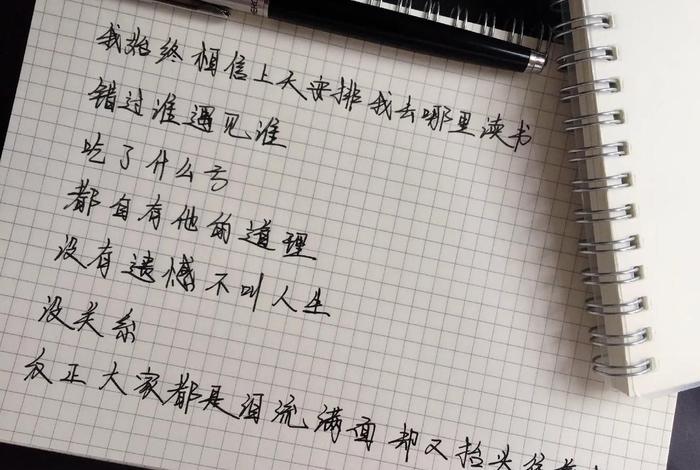 我始终相信上天安排我去哪里读书
错过谁遇见谁
吃了什么亏
都自有他的道理
没有遗憾不叫人生
没关系
反正大家都是泪流满面却又抬头